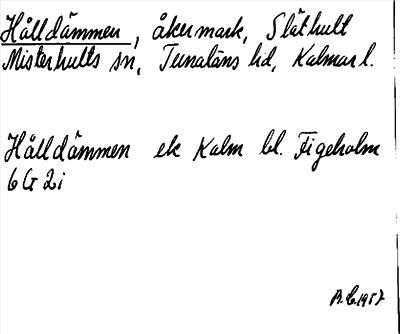 Hålldämmen, åkermark, Släthult
Misterhults sn, Tunaläns hd, Kalmar l.
Hålldämmen ek Kalm bl. Figeholm
6 G 2 i
B.C. 1957